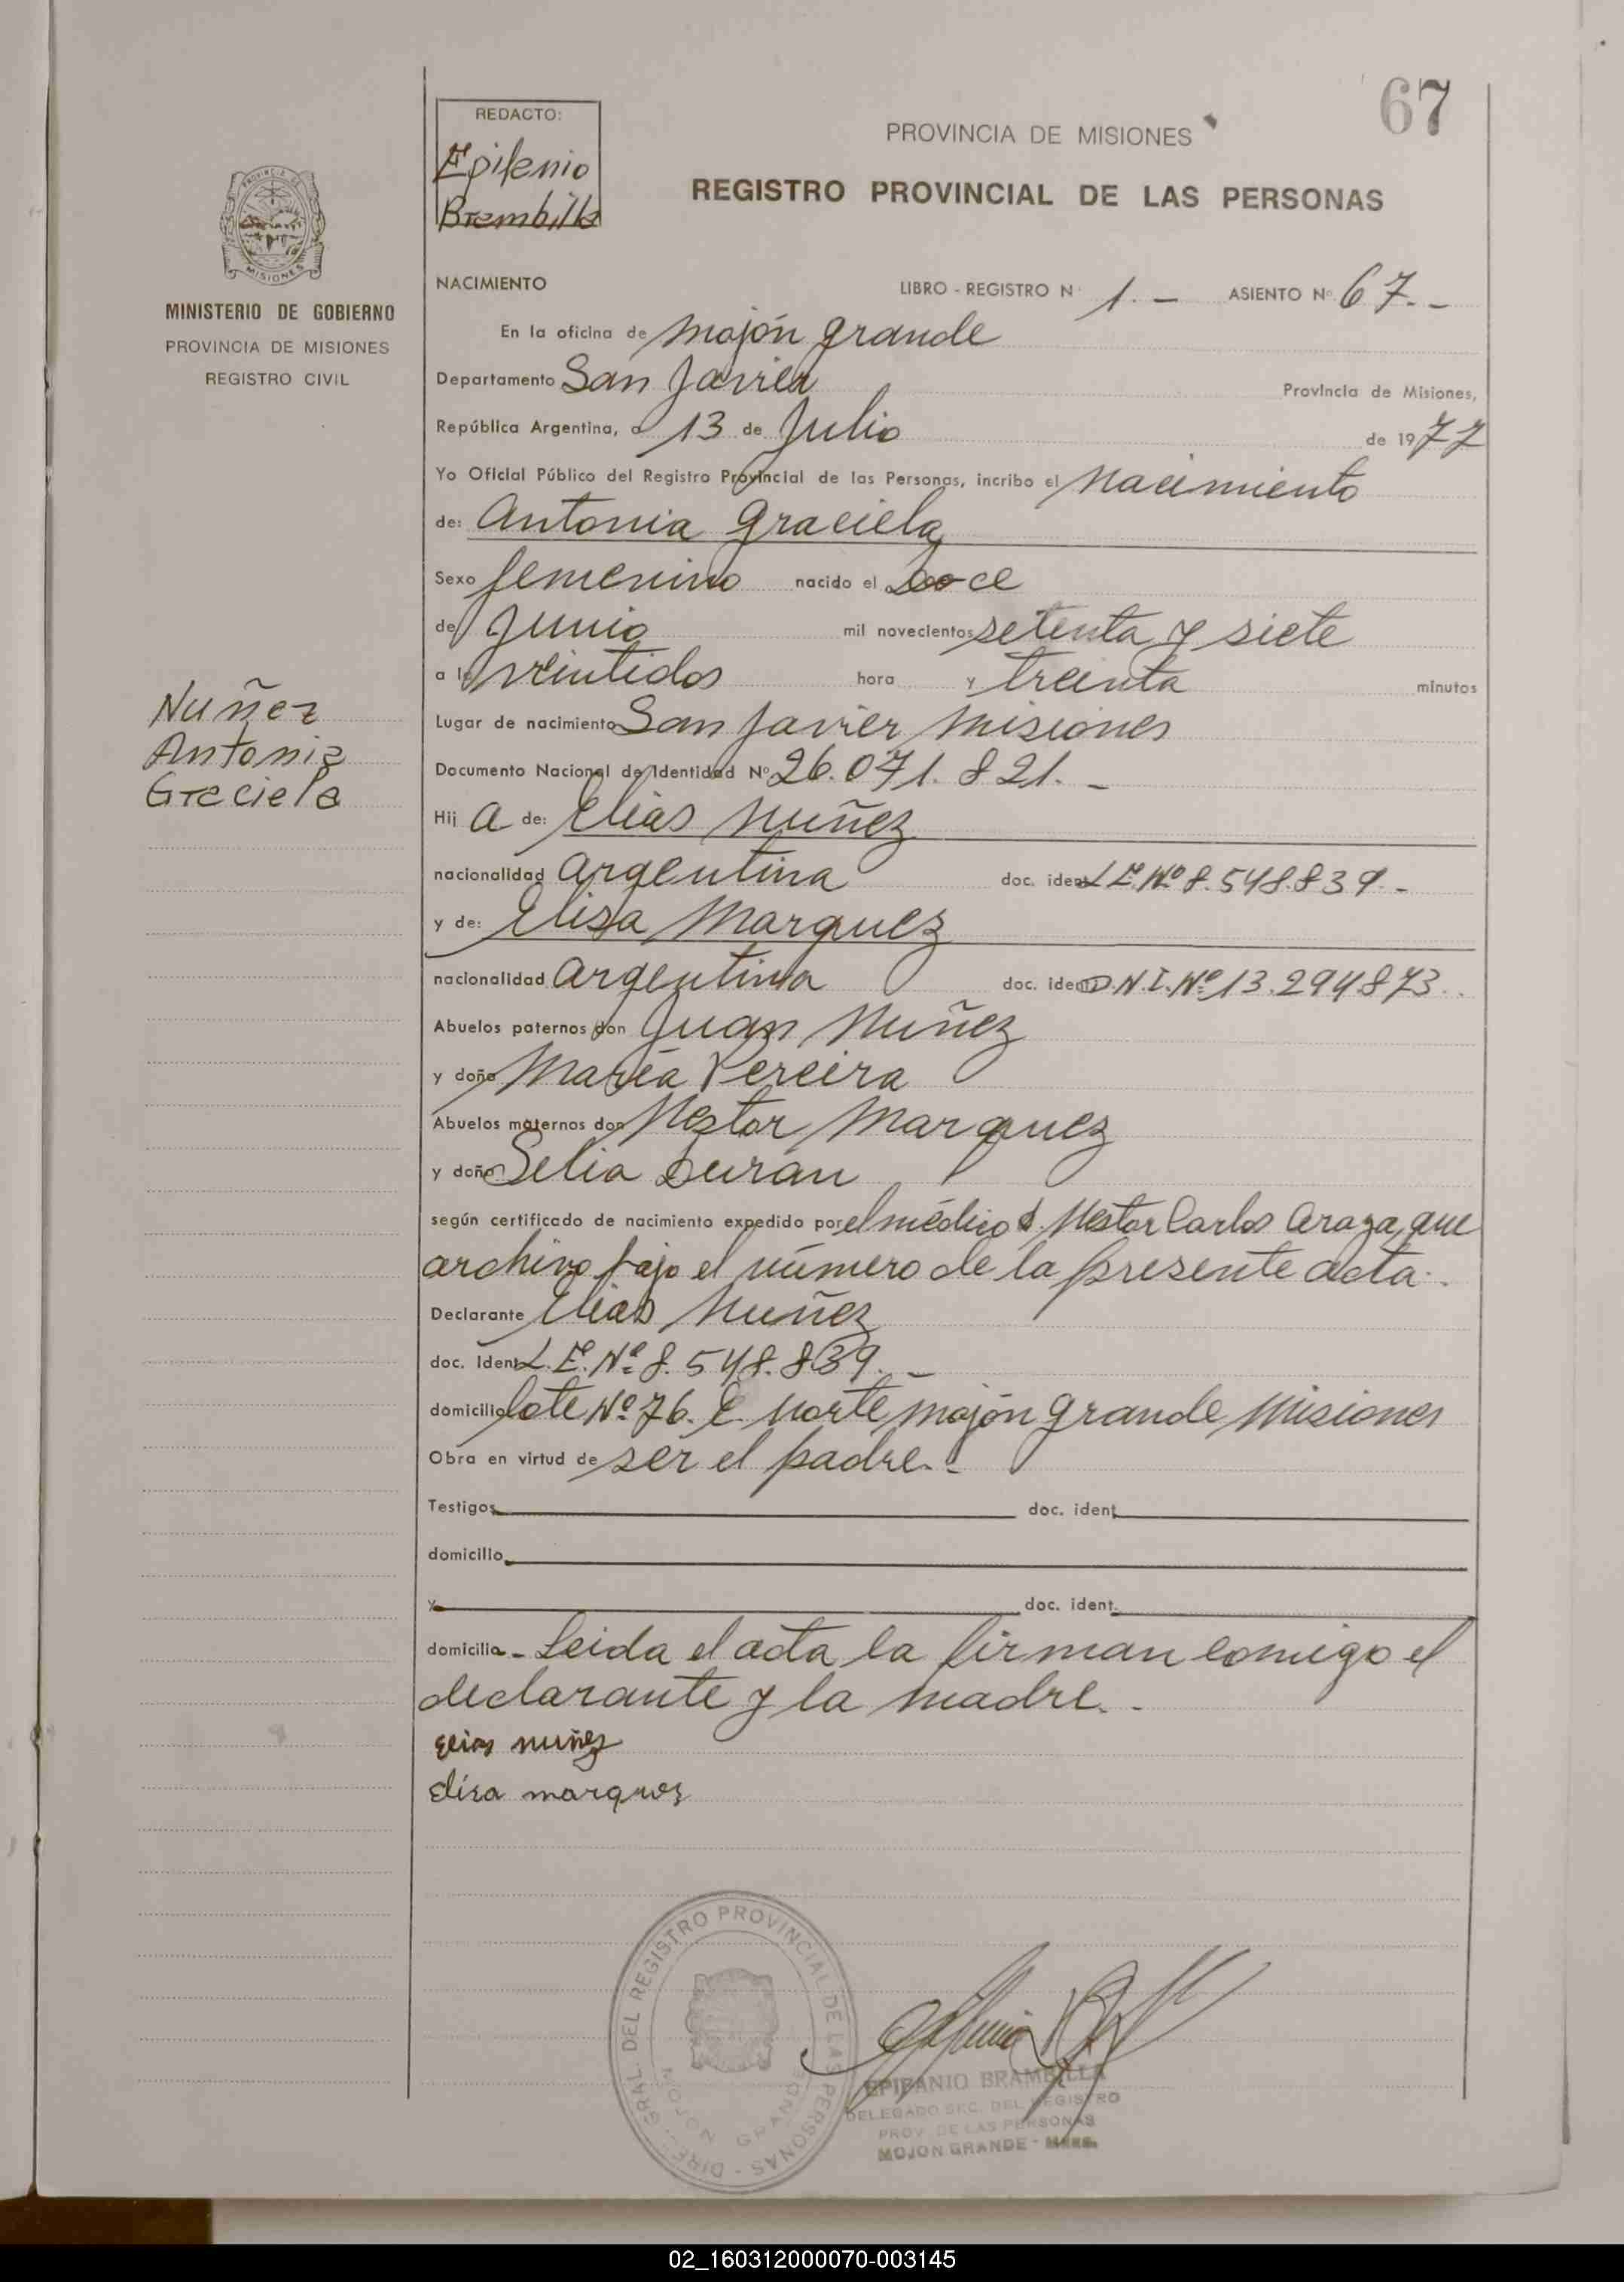 67
REDACTO:
Epifenio
Brembilla
PROVINCIA DE MISIONES
REGISTRO PROVINCIAL DE LAS PERSONAS
PROVINCIA DE
MISIONES
MINISTERIO DE GOBIERNO
PROVINCIA DE MISIONES
REGISTRO CIVIL
NACIMIENTO LIBRO - REGISTRO N° 1. - ASIENTO N° 67. -
En la oficina de Mojón grande
Departamento San Javier Provincia de Misiones,
República Argentina, a 13 de Julio de 1977
Yo Oficial Público del Registro Provincial de las Personas, incribo el Nacimiento
de: Antonia Graciela
Sexo femenino nacido el Doce
de Junio mil novecientos setenta y siete
a la veintidos hora y treinta minutos
Lugar de nacimiento San Javier Misiones
Documento Nacional de Identidad N° 26.071.821. -
Nuñez
Antonia
Graciela
Hij a de: Elias Nuñez
nacionalidad argentina doc. ident L.E. Nº 8.548.839. -
y de: Elisa Marquez
nacionalidad argentina doc. ident D.N.I. Nº 13.294.873..
Abuelos paternos don Juan Nuñez
y doña María Pereira
Abuelos maternos don Nestor Marquez
y doña Selia Duran
según certificado de nacimiento expedido por el médico d. Nestor Carlos Araza, que
archivo bajo el número de la presente acta. -
Declarante Elias Nuñez
doc. Ident L.E. Nº 8.548.839. -
domicilio lote Nº 76. E. Norte Mojón grande Misiones
Obra en virtud de ser el padre. -
Testigos doc. ident
domicilio
y doc. ident.
domicilio - Leida el acta la firman comigo el
declarante y la madre. -
Elias nuñez
elisa marquez
DIRE. GRAL. DEL REGISTRO PROVINCIAL DE LAS PERSONAS -
MOJON GRANDE
EPIFANIO BRAMBILLA
DELEGADO SEC. DEL REGISTRO
PROV. DE LAS PERSONAS
MOJON GRANDE - Mnes.
02_160312000070-003145